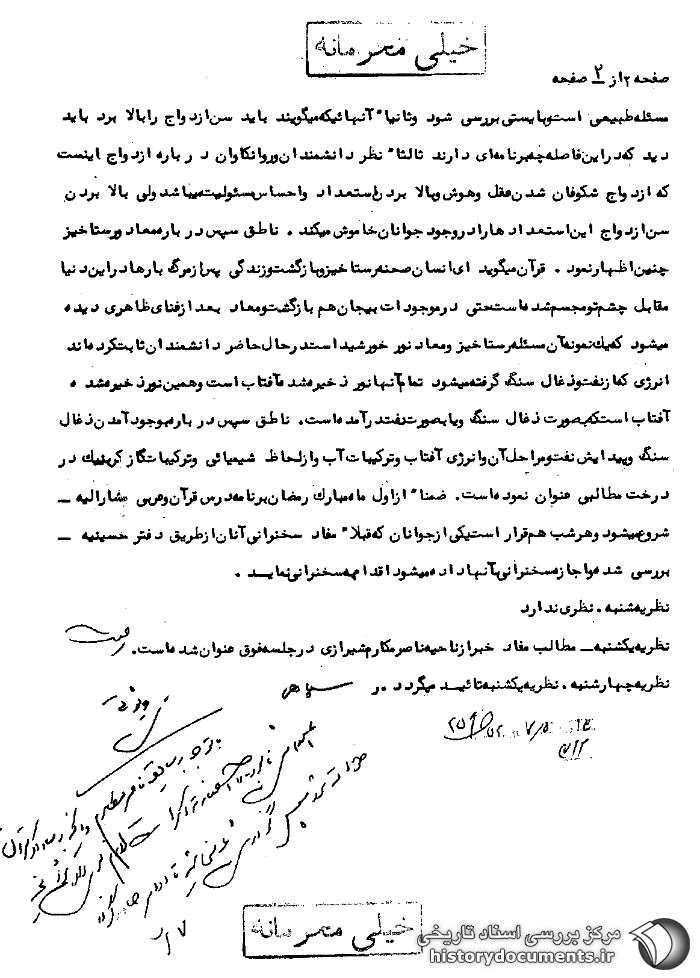 خیلی محرمانه
صفحه ۲ از ۲ صفحه
مسئله طبیعی است و بایستی بررسی شود و ثانیا" آنهائیکه میگویند باید سن ازدواج را بالا برد باید
دید که در این فاصله چه برنامه‌ای دارند ثالثا" نظر دانشمندان و روانکاوان در باره ازدواج اینست
که ازدواج شکوفان شدن عقل و هوش و بالا بردن استعداد و احساس مسئولیت میباشد ولی بالا بردن
سن ازدواج این استعدادها را در وجود جوانان خاموش میکند . ناطق سپس در باره معاد و رستاخیز
چنین اظهار نمود . قرآن میگوید ای انسان صحنه رستاخیز و بازگشت و زندگی پس از مرگ بارها در این دنیا
مقابل چشم تو مجسم شده است حتی در موجودات بیجان هم بازگشت و معاد بعد از فنای ظاهری دیده
میشود که یک نمونه آن مسئله رستاخیز و معاد نور خورشید است در حال حاضر دانشمندان ثابت کرده‌اند
انرژی که از نفت و ذغال سنگ گرفته میشود تمام آنها نور ذخیره شده آفتاب است و همین نور ذخیره شده
آفتاب است که بصورت ذغال سنگ و یا بصورت نفت در آمده است. ناطق سپس در باره بوجود آمدن ذغال
سنگ و پیدایش نفت و مراحل آن و انرژی آفتاب و ترکیبات آب و از لحاظ شیمیائی و ترکیبات گاز کربنیک در
درخت مطالبی عنوان نموده است. ضمنا" از اول ماه مبارک رمضان برنامه درس قرآن و عربی مشارالیه ــ
شروع میشود و هر شب هم قرار است یکی از جوانان که قبلا" مفاد سخنرانی آنان از طریق دفتر حسینیه ــ
بررسی شده و اجازه سخنرانی بآنها داده میشود اقدام به سخنرانی نمایــد .
نظریه شنبه . نظری ندارد
نظریه یکشنبه ــ مطالب مفاد خبر از ناحیه ناصر مکارم شیرازی در جلسه فوق عنوان شده است.
نظریه چهارشنبه . نظریه یکشنبه تائیــد میگردد .ر
خیلی محرمانه
مرکز بررسی اسناد تاریخی
historydocuments.ir